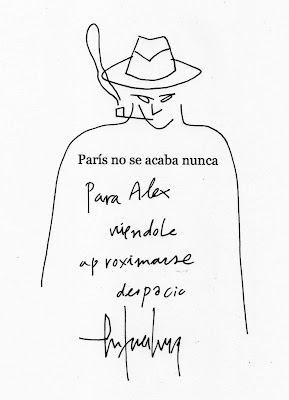 París no se acaba nunca
Para Alex
viéndole
aproximarse
despacio